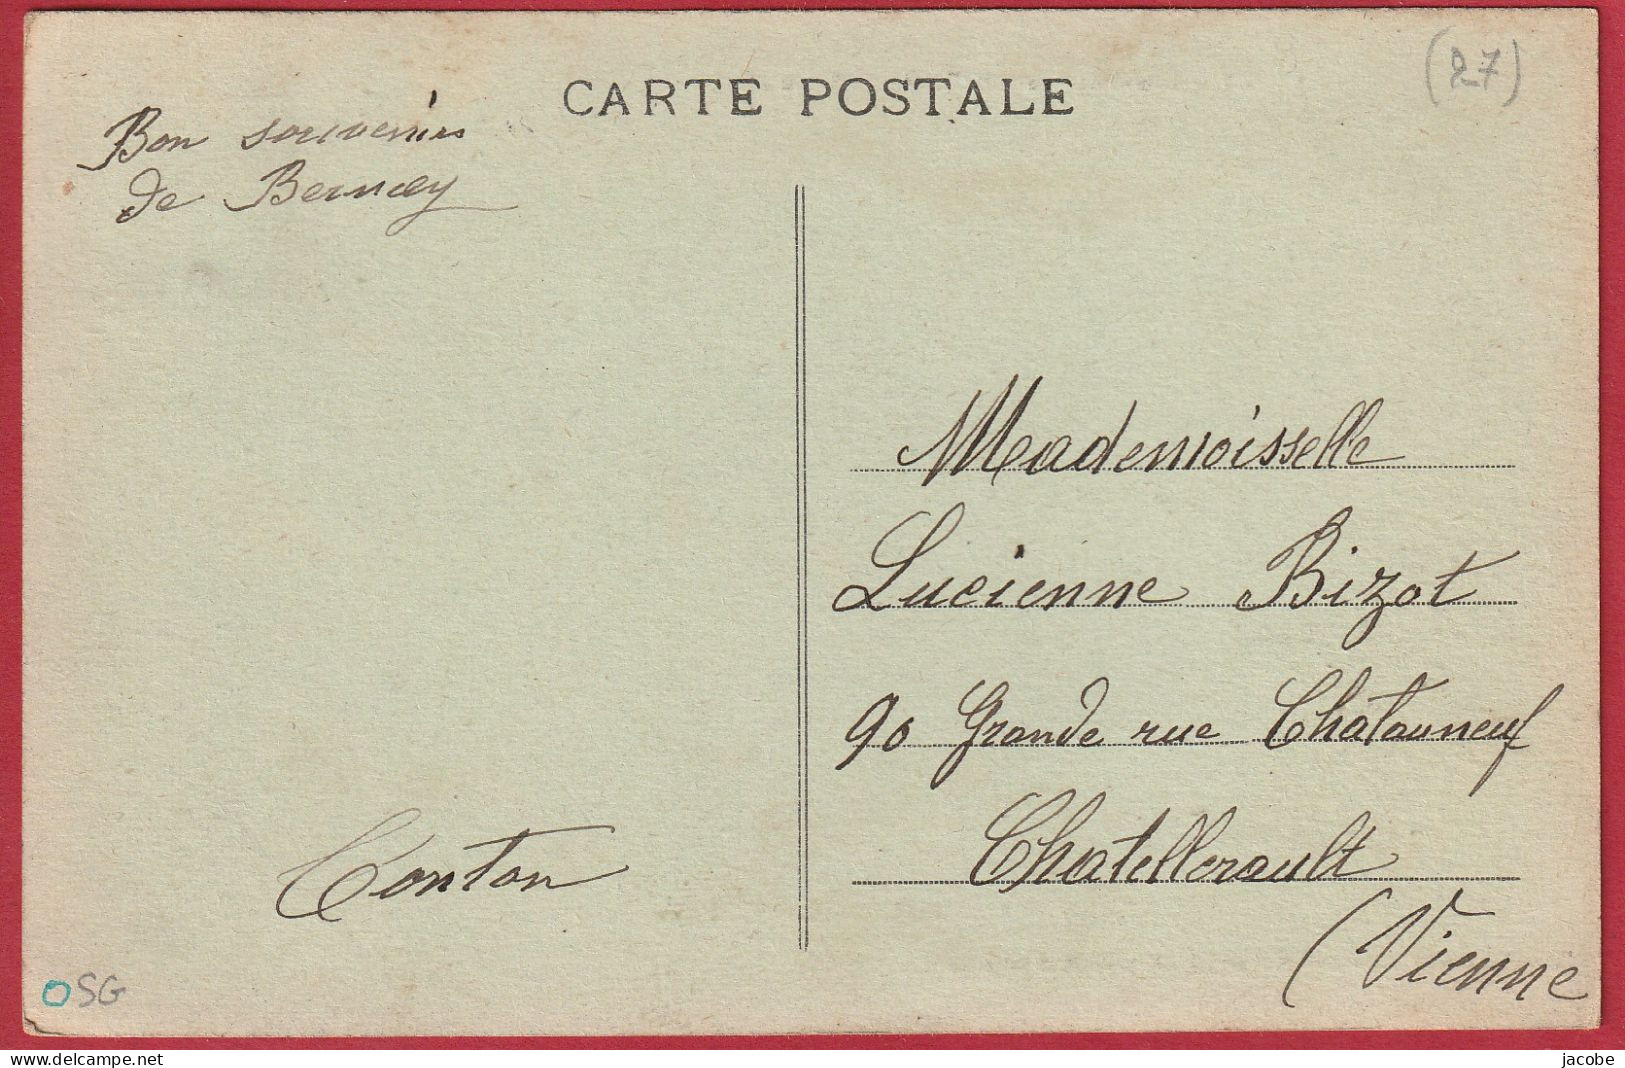 CARTE POSTALE
(27)
Bon souvenir
de Bernay
Conton
Mademoisselle
Lucienne Bizot
90 Grande rue Chatauneuf
Chatellerault
(Vienne
SG
www.delcampe.net
jacobe